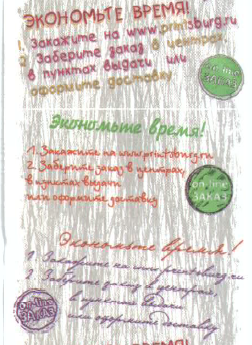 ЭКОНОМЬТЕ ВРЕМЯ!
1. Закажите на www.printsburg.ru
2 Заберите заказ в центрах,
в пунктах выдачи или
оформите доставку
on-line
ЗАКАЗ
Экономьте время!
1. Закажите на www.printsburg.ru
2. Заберите заказ в центрах,
в пунктах выдачи
или оформите доставку
on-line
ЗАКАЗ
Экономьте время!
1. Закажите на www.printsburg.ru
2. Заберите заказ в центрах,
в пунктах выдачи
или оформите доставку
on-line
ЗАКАЗ